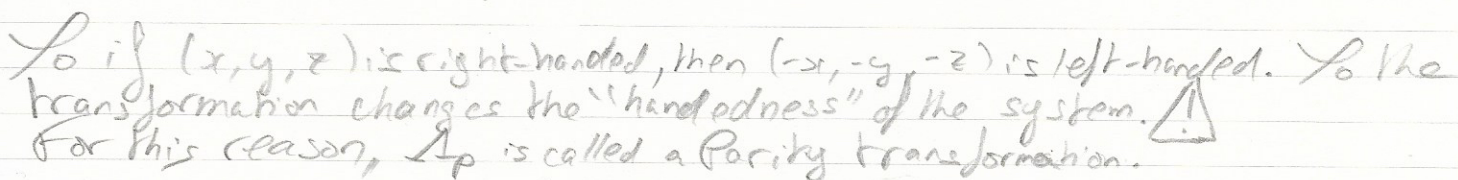 So if (x, y, z) is right-handed, then (-x, -y, -z) is left-handed. So the
transformation changes the "handedness" of the system. ⚠
For this reason, Λₚ is called a Parity transformation.